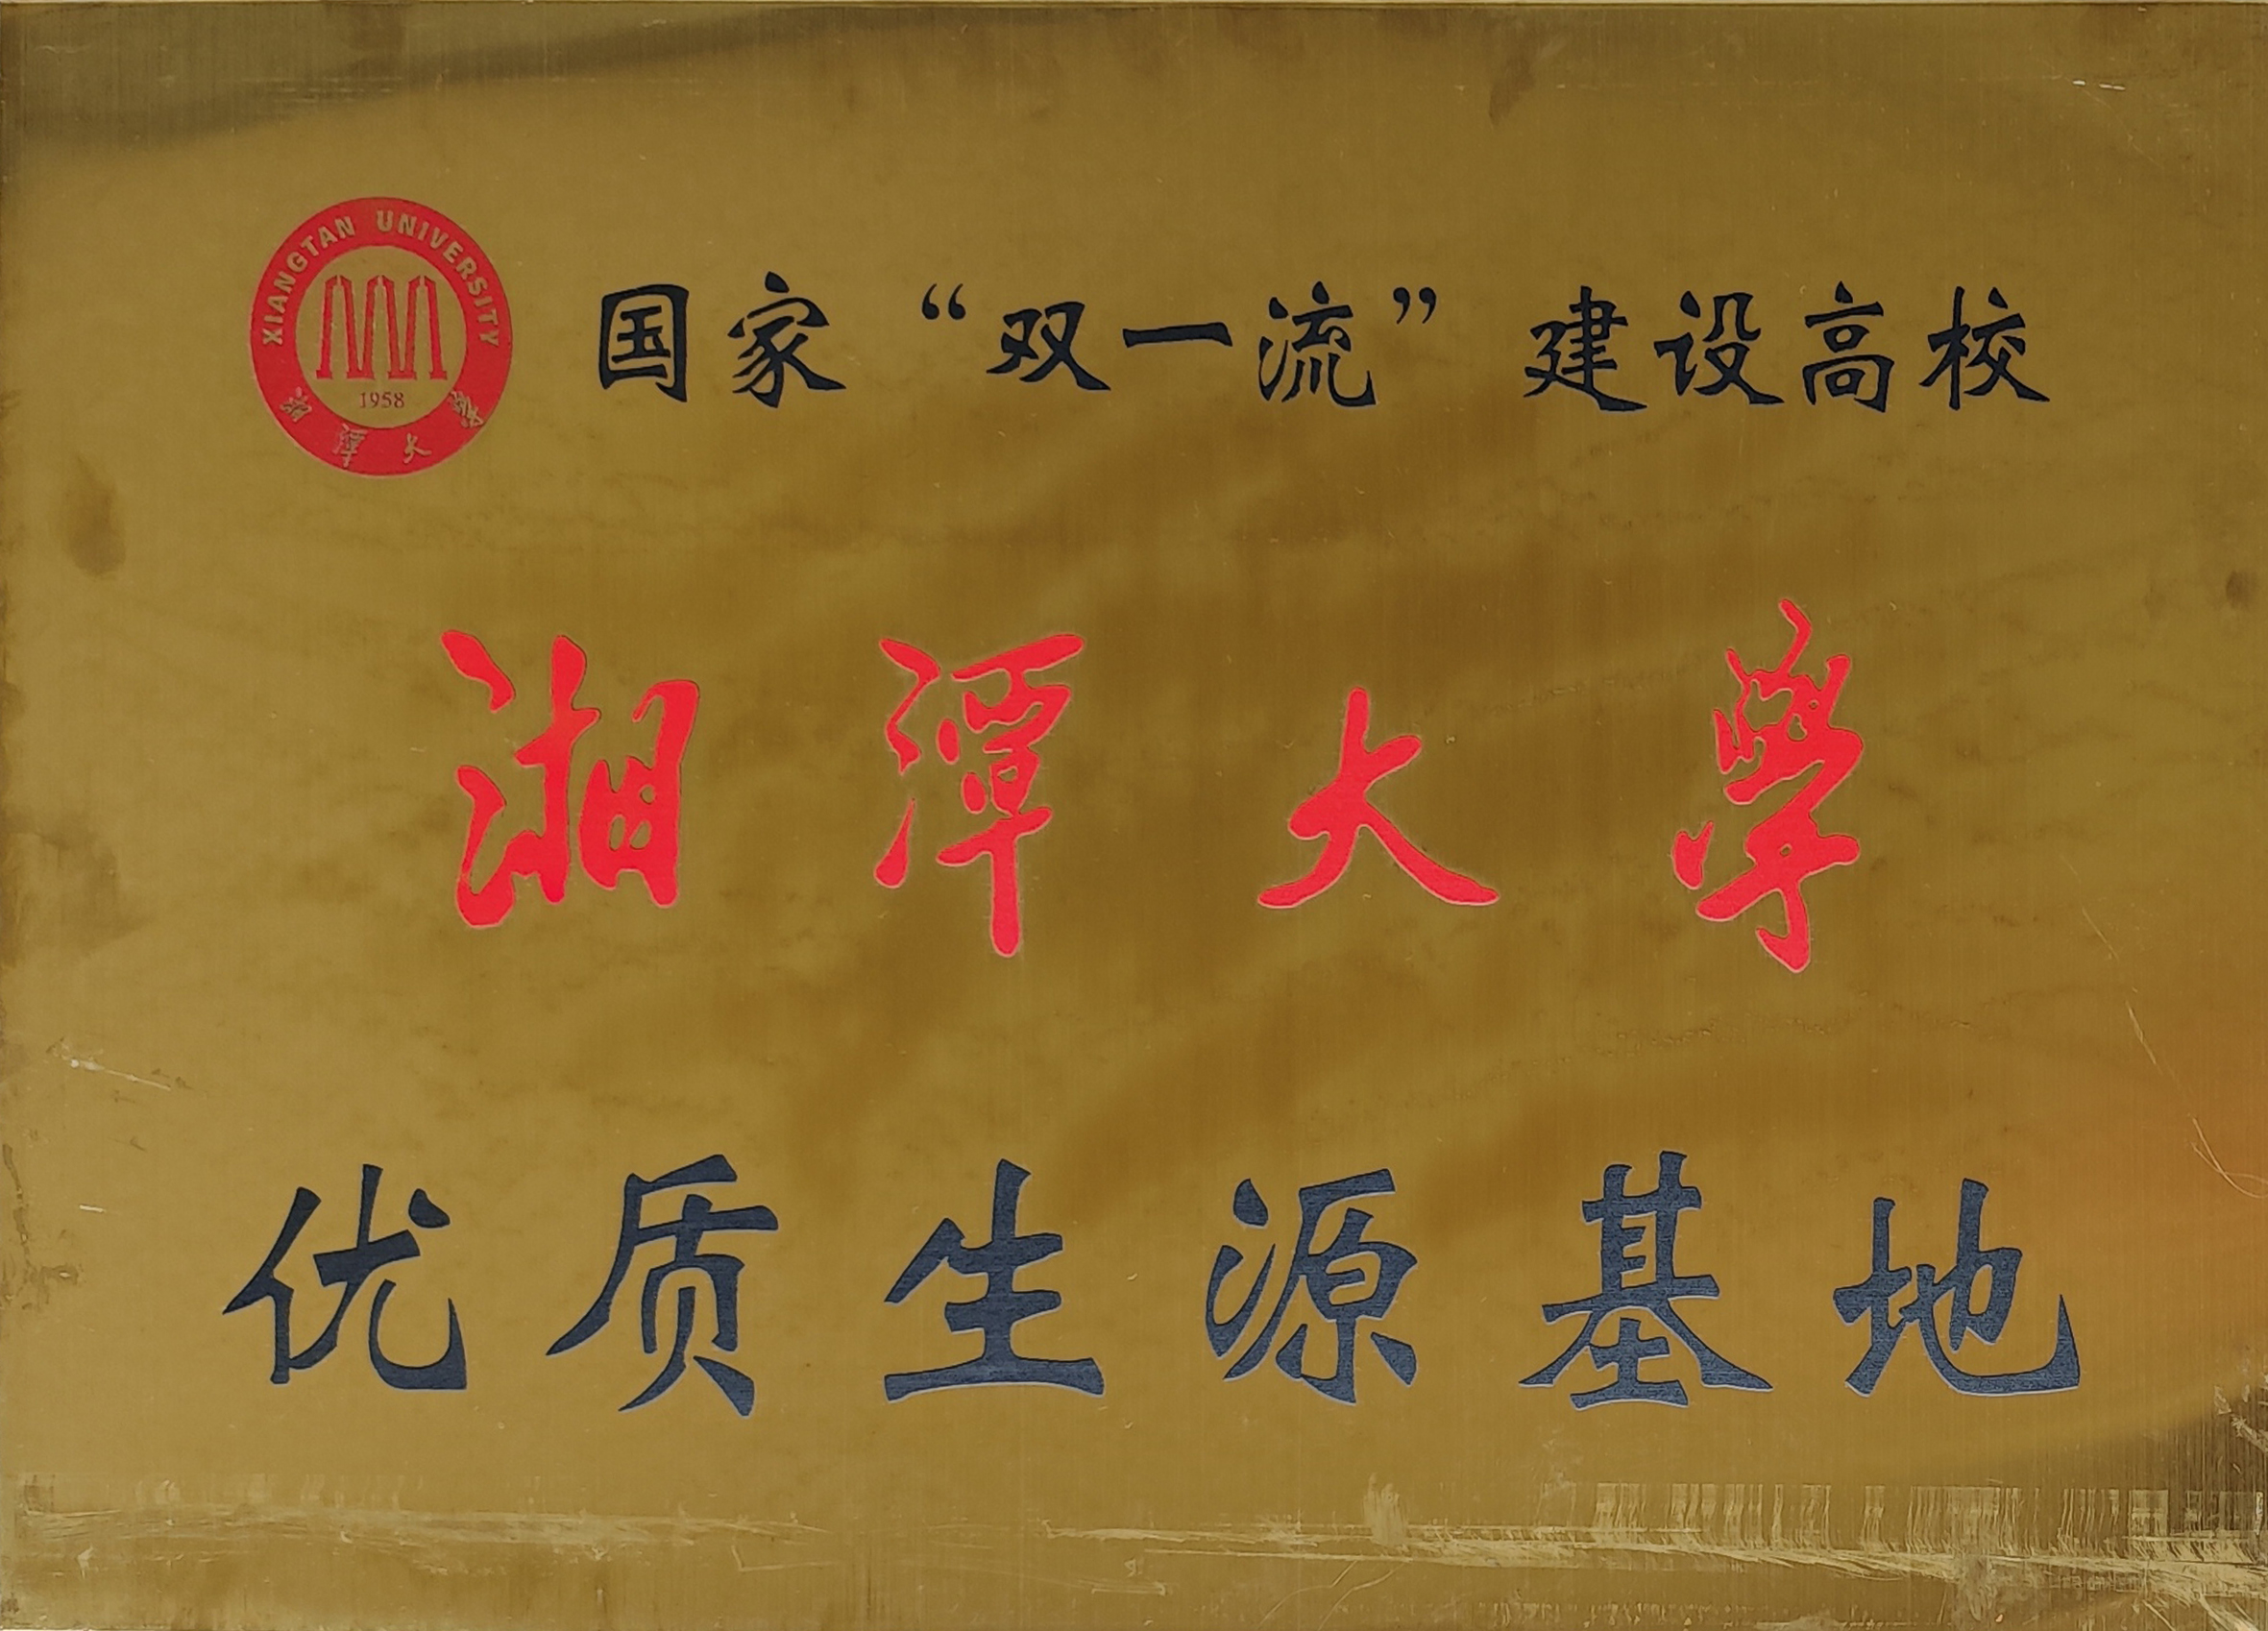 XIANGTAN UNIVERSITY
1958
湘潭大學
国家“双一流”建设高校
湘潭大學
优质生源基地